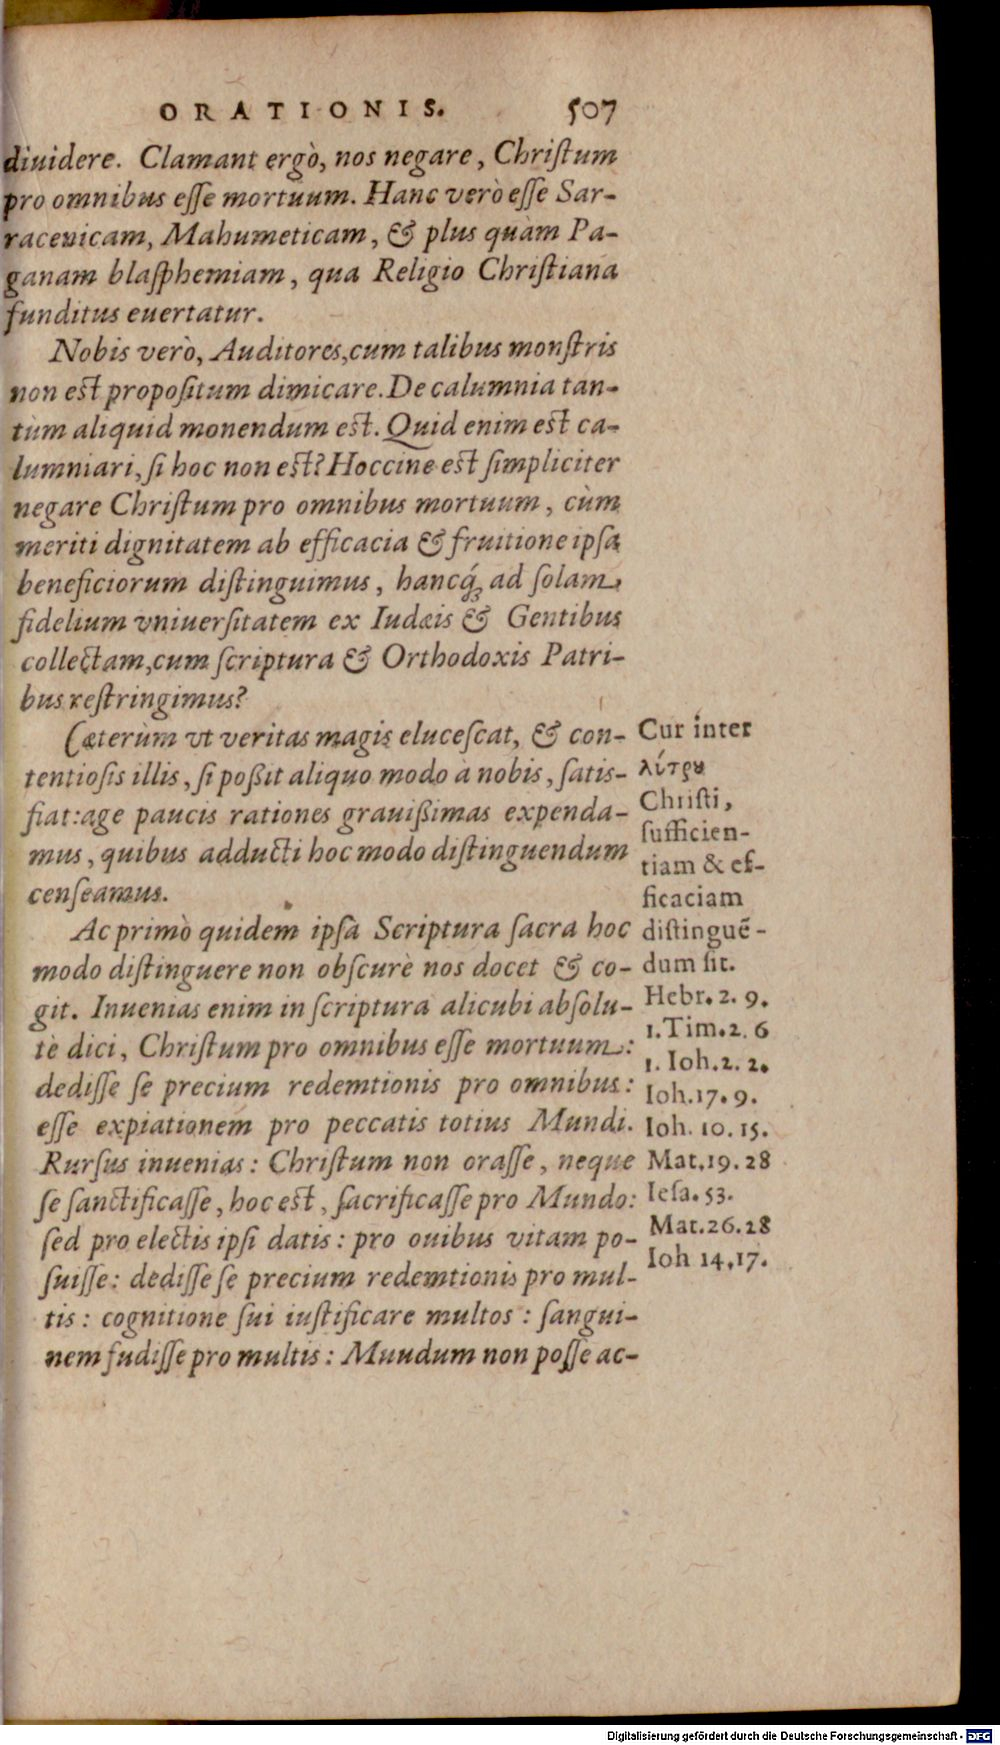 ORATIONIS. 507
diuidere. Clamant ergò, nos negare, Chriſtum
pro omnibus eſſe mortuum. Hanc verò eſſe Sar-
racenicam, Mahumeticam, & plus quàm Pa-
ganam blaſphemiam, qua Religio Chriſtiana
funditus euertatur.
Nobis verò, Auditores, cum talibus monſtris
non eſt propoſitum dimicare. De calumnia tan-
tùm aliquid monendum eſt. Quid enim eſt ca-
lumniari, ſi hoc non eſt? Hoccine eſt ſimpliciter
negare Chriſtum pro omnibus mortuum, cùm
meriti dignitatem ab efficacia & fruitione ipſa
beneficiorum diſtinguimus, hancq́ꝫ ad ſolam
fidelium vniuerſitatem ex Iudæis & Gentibus
collectam, cum ſcriptura & Orthodoxis Patri-
bus reſtringimus?
Cæterùm vt veritas magis eluceſcat, & con-
tentioſis illis, ſi poßit aliquo modo à nobis, ſatis-
fiat: age paucis rationes grauißimas expenda-
mus, quibus adducti hoc modo diſtinguendum
cenſeamus.
Ac primò quidem ipſa Scriptura ſacra hoc
modo diſtinguere non obſcurè nos docet & co-
git. Inuenias enim in ſcriptura alicubi abſolu-
tè dici, Chriſtum pro omnibus eſſe mortuum:
dediſſe ſe precium redemtionis pro omnibus:
eſſe expiationem pro peccatis totius Mundi.
Rurſus inuenias: Chriſtum non oraſſe, neque
ſe ſanctificaſſe, hoc eſt, ſacrificaſſe pro Mundo:
ſed pro electis ipſi datis: pro ouibus vitam po-
ſuiſſe: dediſſe ſe precium redemtionis pro mul-
tis: cognitione ſui iuſtificare multos: ſangui-
nem fudiſſe pro multis: Muudum non poſſe ac-
Cur inter
λύτρȣ
Chriſti,
ſufficien-
tiam & ef-
ficaciam
diſtinguē-
dum ſit.
Hebr. 2. 9.
1. Tim. 2. 6
1. Ioh. 2. 2.
Ioh. 17. 9.
Ioh. 10. 15.
Mat. 19. 28
Ieſa. 53.
Mat. 26. 28
Ioh 14, 17.
Digitalisierung gefördert durch die Deutsche Forschungsgemeinschaft - DFG